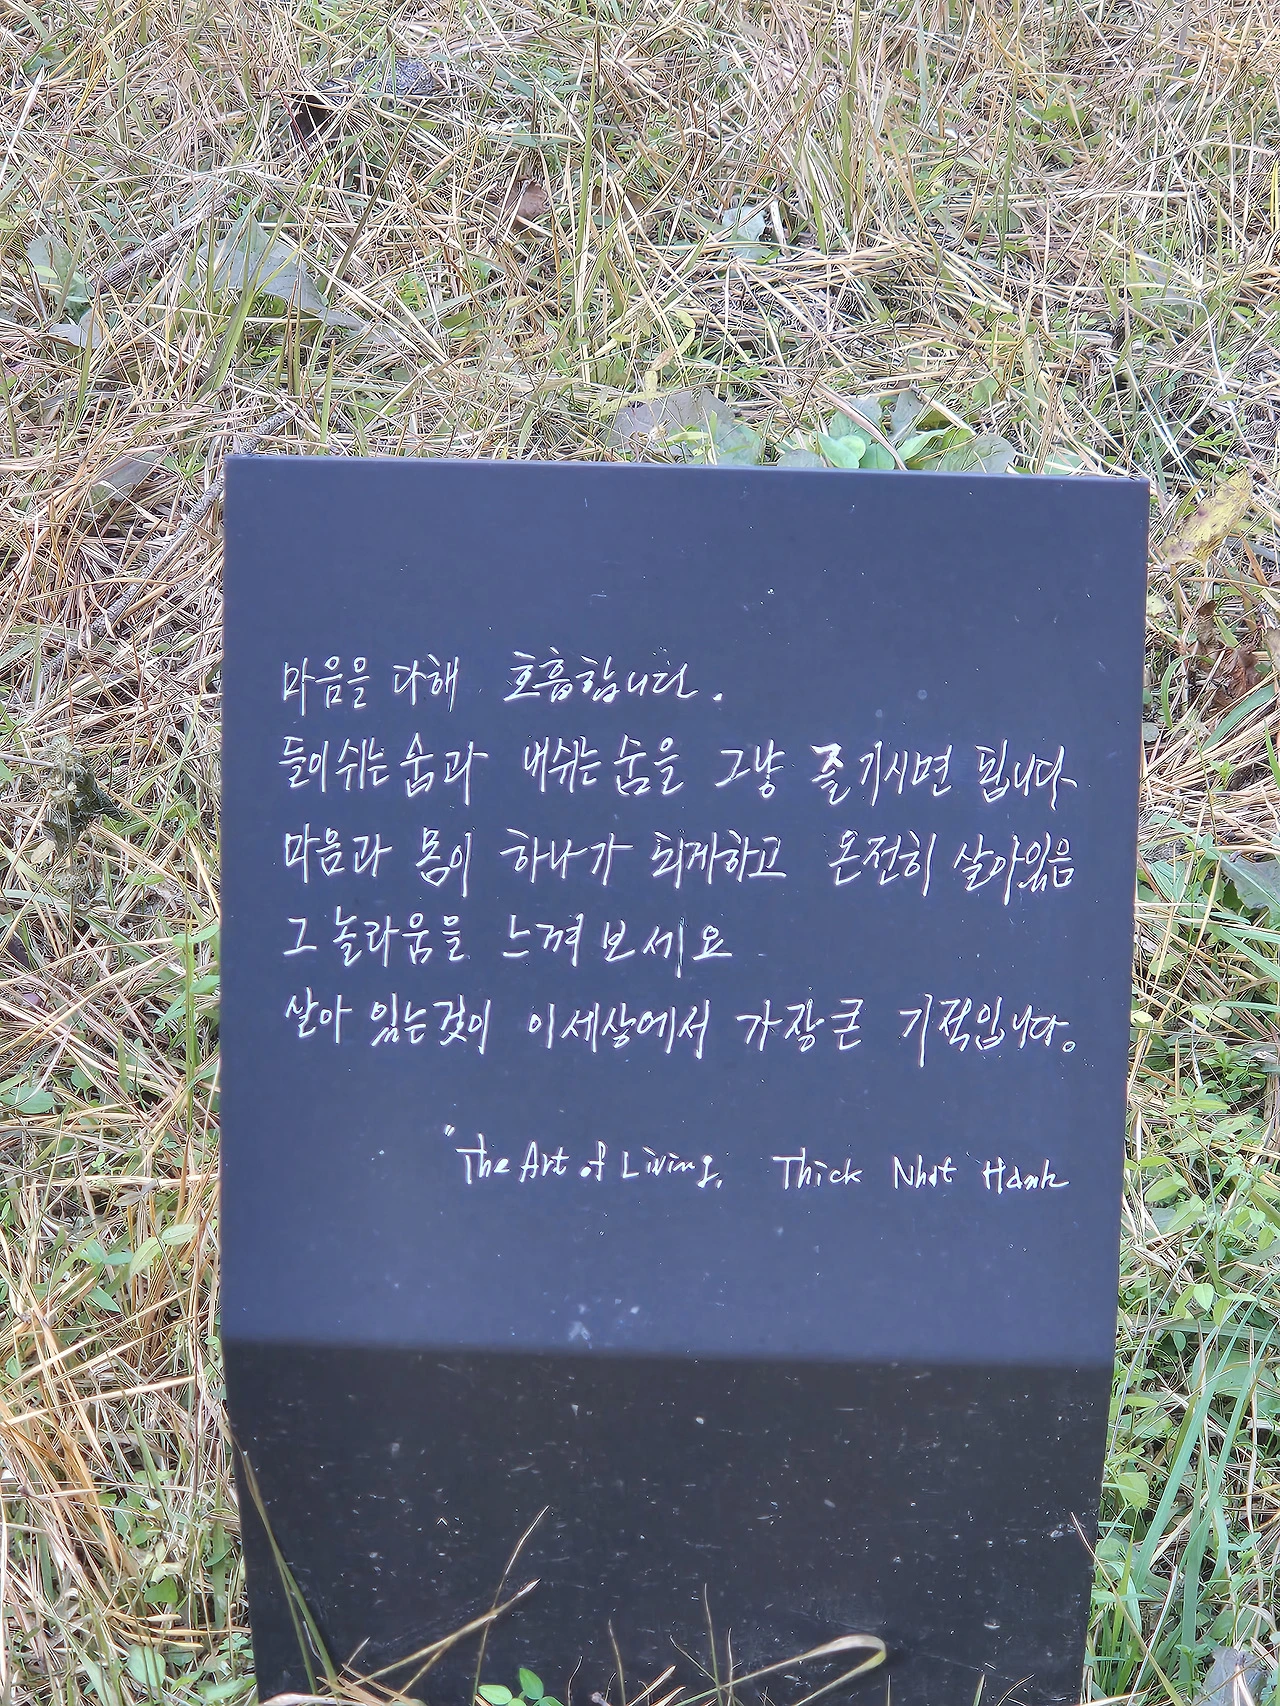 마음을 다해 호흡합니다.
들이쉬는 숨과 내쉬는 숨을 그냥 즐기시면 됩니다
마음과 몸이 하나가 되게하고 온전히 살아있음
그 놀라움을 느껴 보세요
살아 있는것이 이세상에서 가장 큰 기적입니다.
"The Art of Living, Thick Nhat Hanh